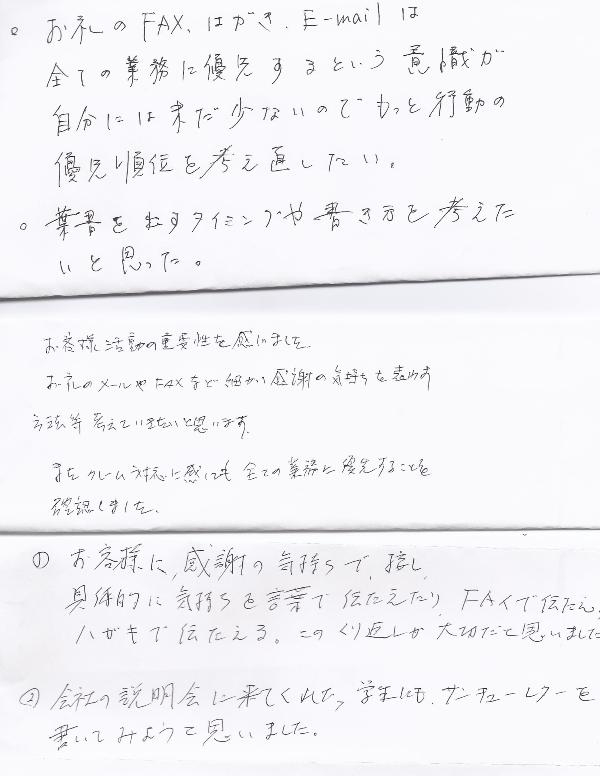 。お礼のFAX、はがき、E-mailは
全ての業務に優先するという意識が
自分には未だ少ないのでもっと行動の
優先順位を考え直したい。
。葉書を出すタイミングや書き方を考えた
いと思った。
お客様活動の重要性を感じました。
お礼のメールやFAXなど細かい感謝の気持ちを表わす
方法等考えていきたいと思います。
またクレーム対応に感しても全ての業務に優先することを
確認しました。
① お客様に、感謝の気持ちで、接し、
具体的に気持ちを言葉で伝たえたり、FAXで伝たえ、
ハガキで伝たえる。このくり返しが大切だと思いました
② 会社の説明会に来てくれた、学生にも、サンキューレターを
書いてみようと思いました。